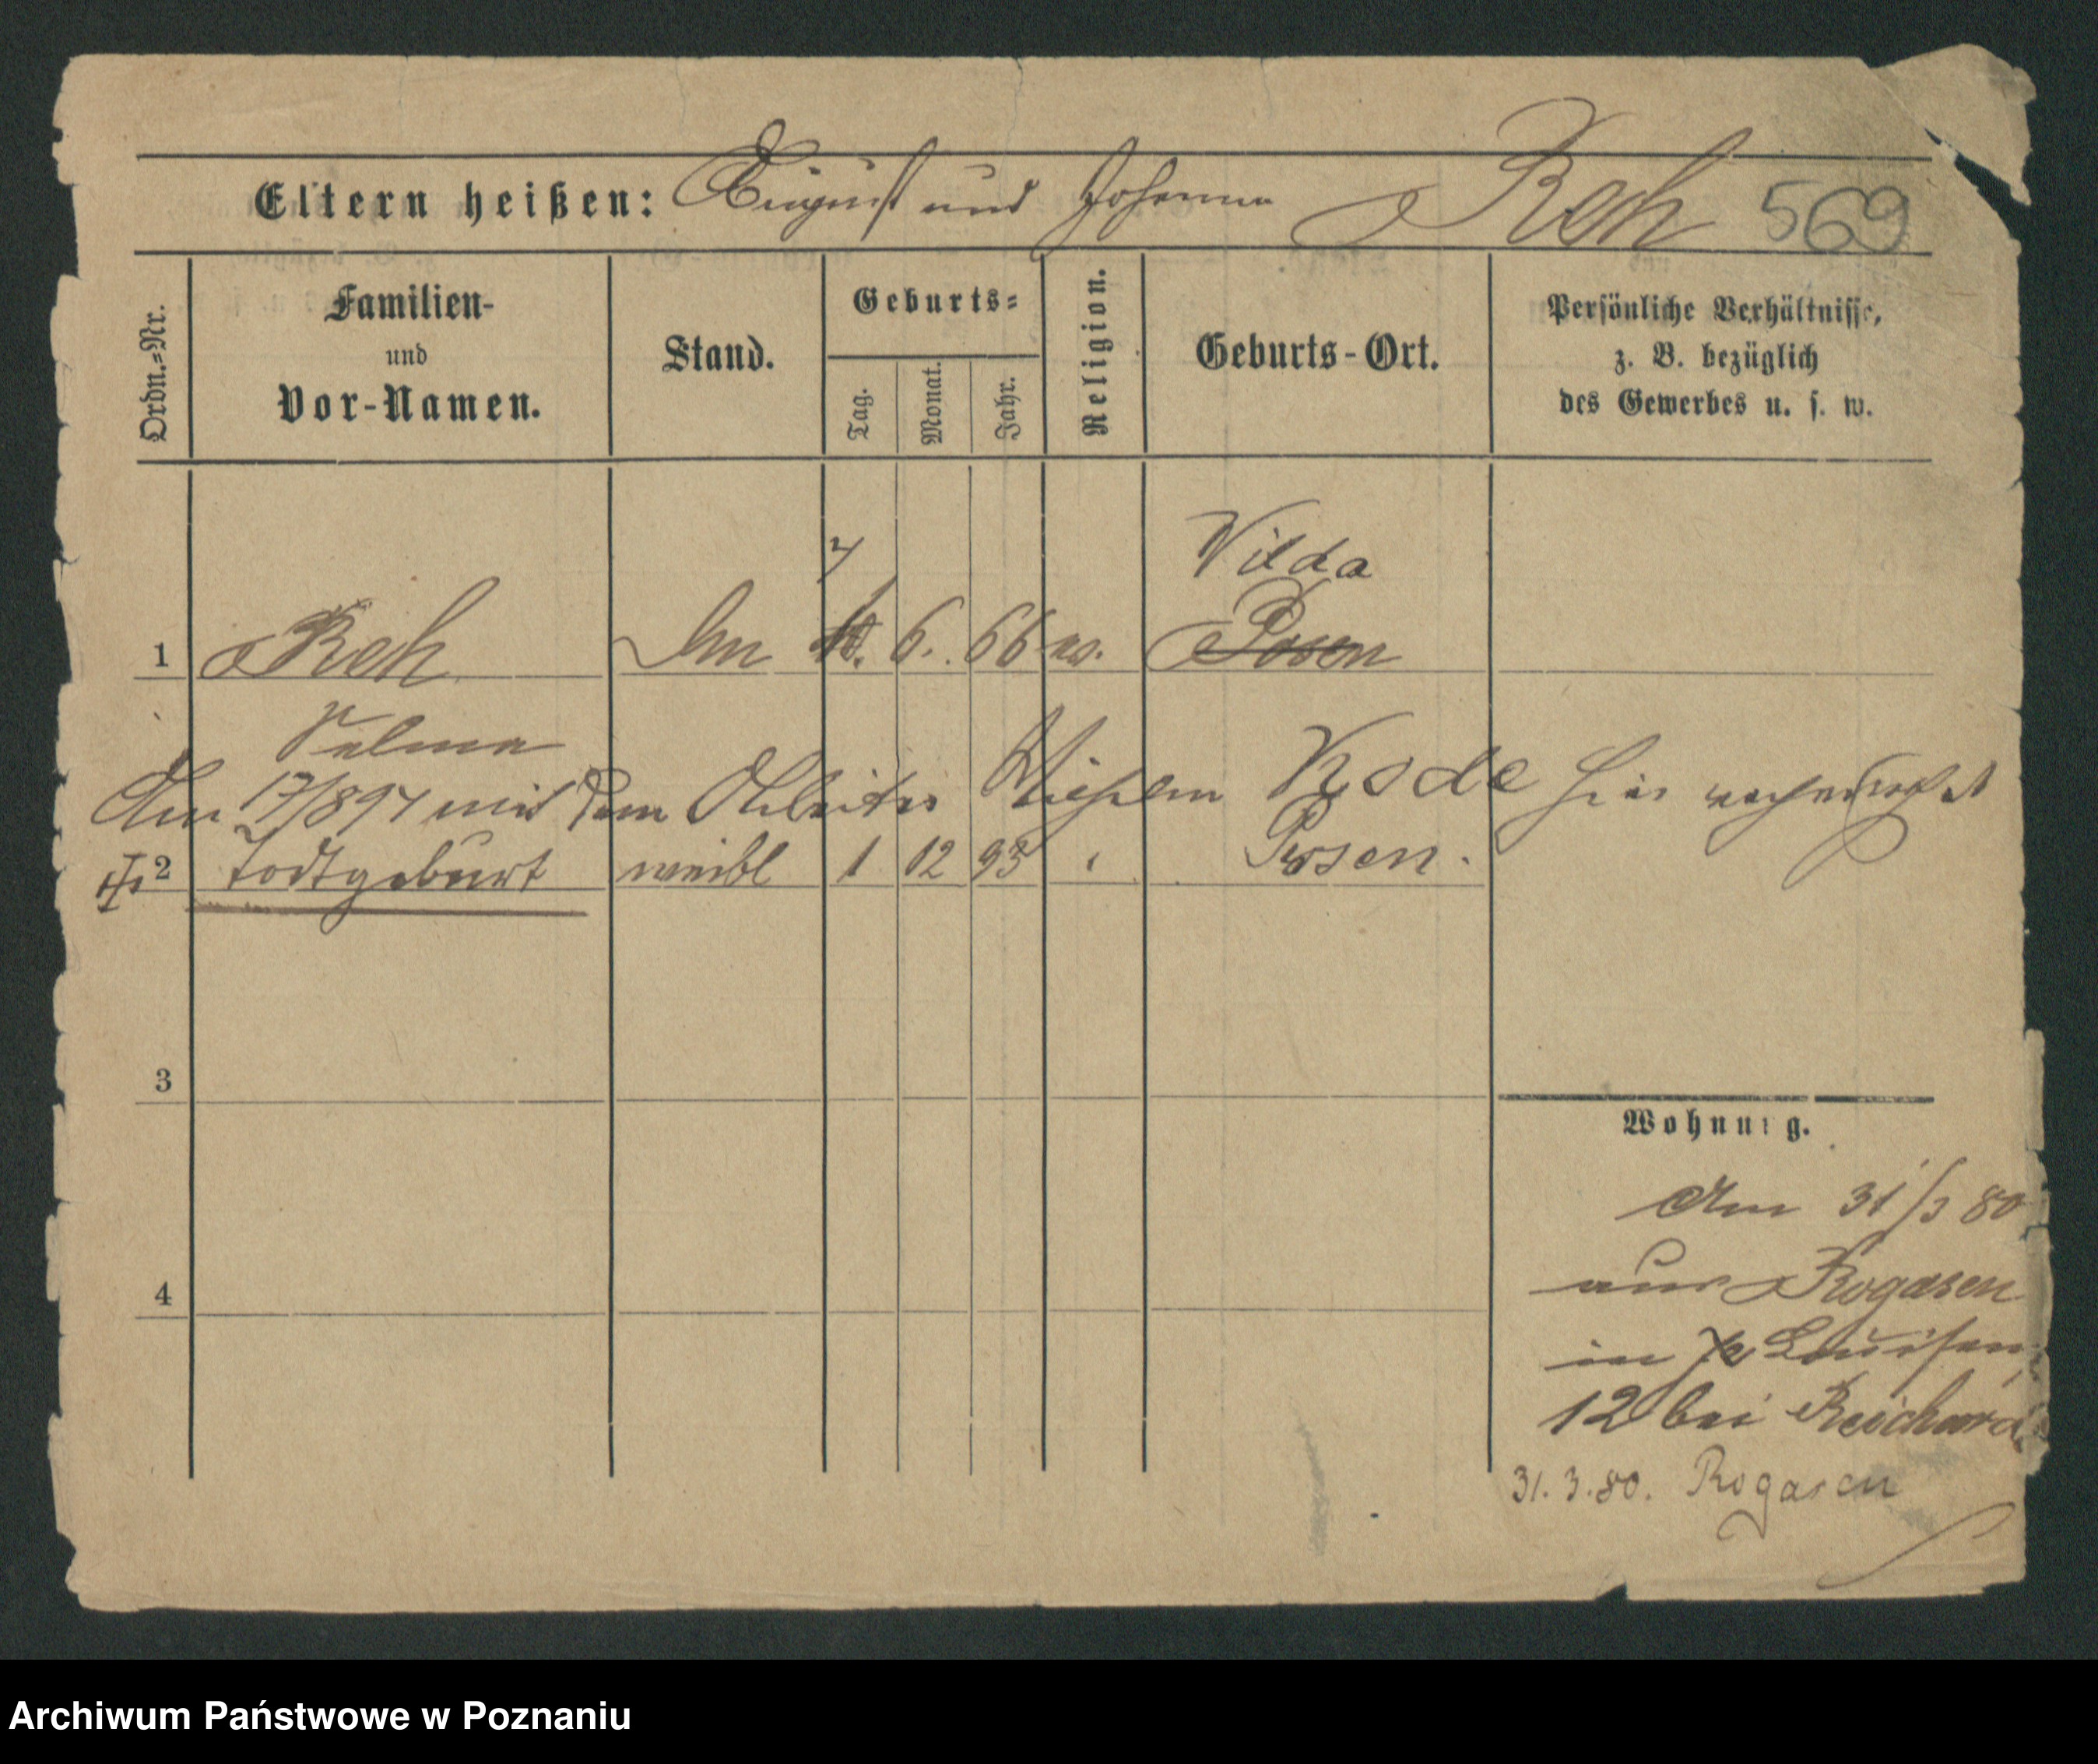 Eltern heißen: August und Johanna Reh 569
Ordn.-Nr.
Familien-
und
Vor-Namen.
Stand.
Geburts-
Tag.
Monat.
Jahr.
Religion.
Geburts-Ort.
Persönliche Verhältnisse,
z. B. bezüglich
des Gewerbes u. s. w.
7 Wilda
1 Reh 6. 66 ev. Posen
Selma
Am 17/8 97 mit dem Arbeiter Wilhelm Kode hier verheirathet
2 Todtgeburt weibl 1 12 93 Posen.
3
Wohnung.
Am 31/3 80
aus Rogasen
4
in Louisen
12 bei Reichard
31.3.80. Rogasen
Archiwum Państwowe w Poznaniu